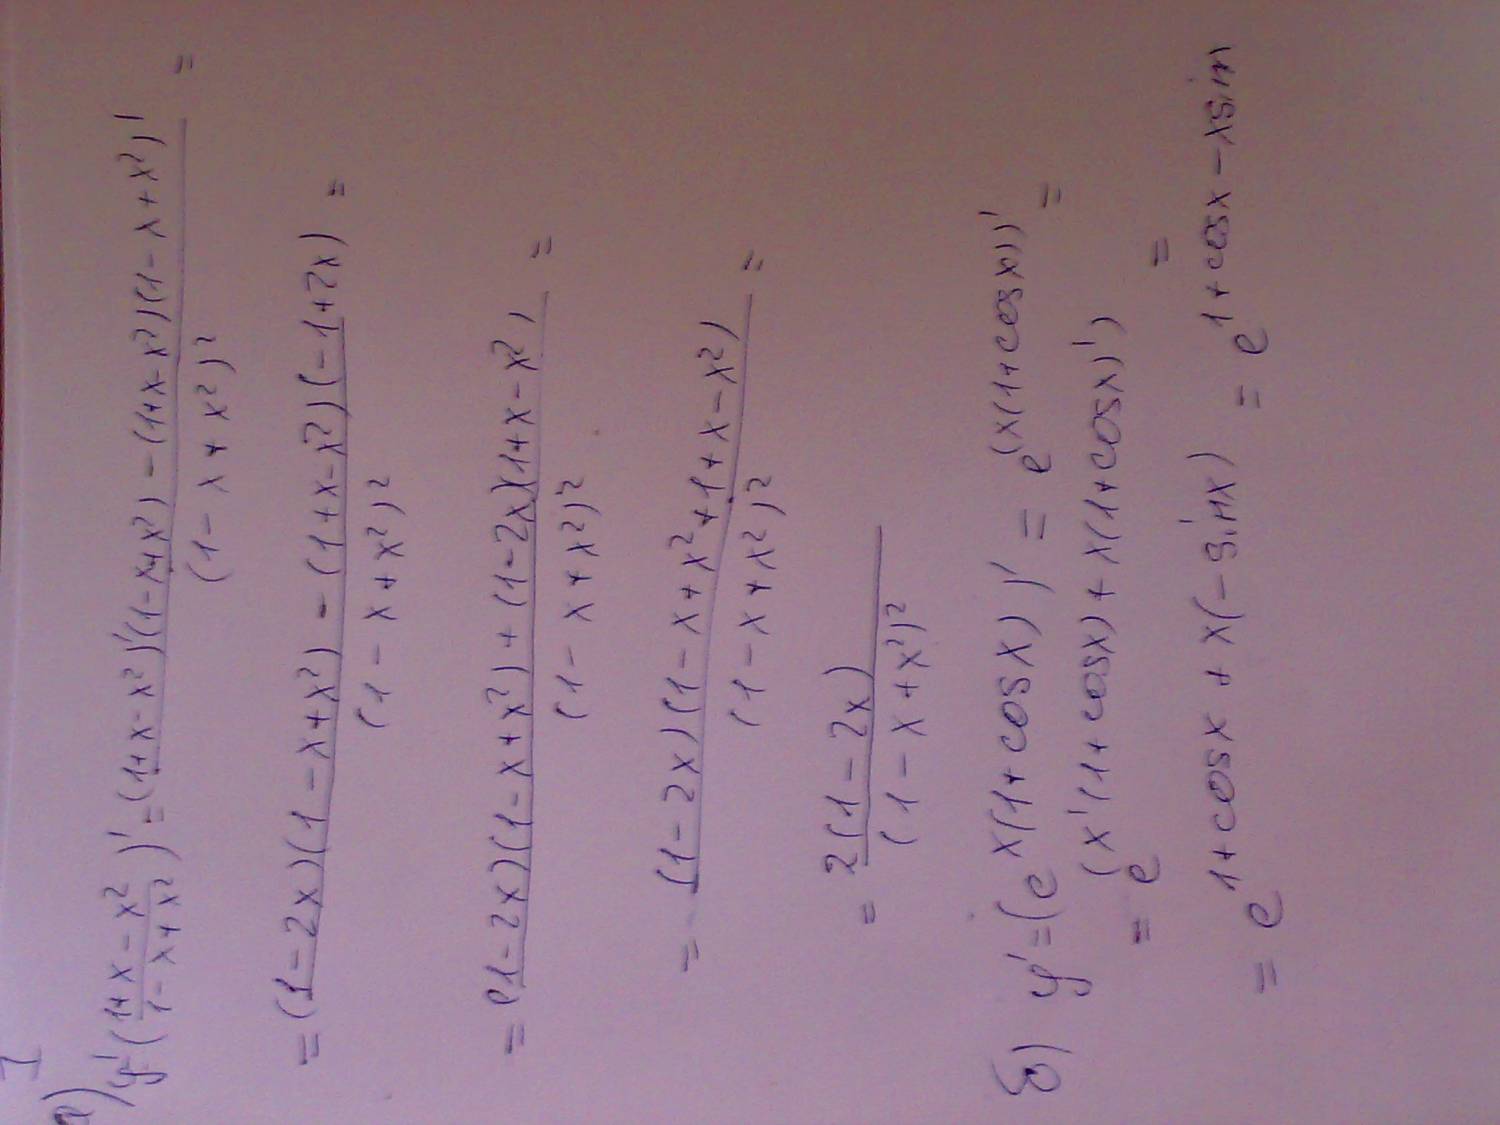 I
а) y' (\frac{1+x-x^2}{1-x+x^2})' = \frac{(1+x-x^2)'(1-x+x^2)-(1+x-x^2)(1-x+x^2)'}{(1-x+x^2)^2} =
= \frac{(1-2x)(1-x+x^2)-(1+x-x^2)(-1+2x)}{(1-x+x^2)^2} =
= \frac{(1-2x)(1-x+x^2)+(1-2x)(1+x-x^2)}{(1-x+x^2)^2} =
= \frac{(1-2x)(1-x+x^2+1+x-x^2)}{(1-x+x^2)^2} =
= \frac{2(1-2x)}{(1-x+x^2)^2}
б) y'=(e^{x(1+cosx)})' = e^{(x(1+cosx))'} =
= e^{(x'(1+cosx)+x(1+cosx)')} =
= e^{1+cosx+x(-sinx)} = e^{1+cosx-xsin}